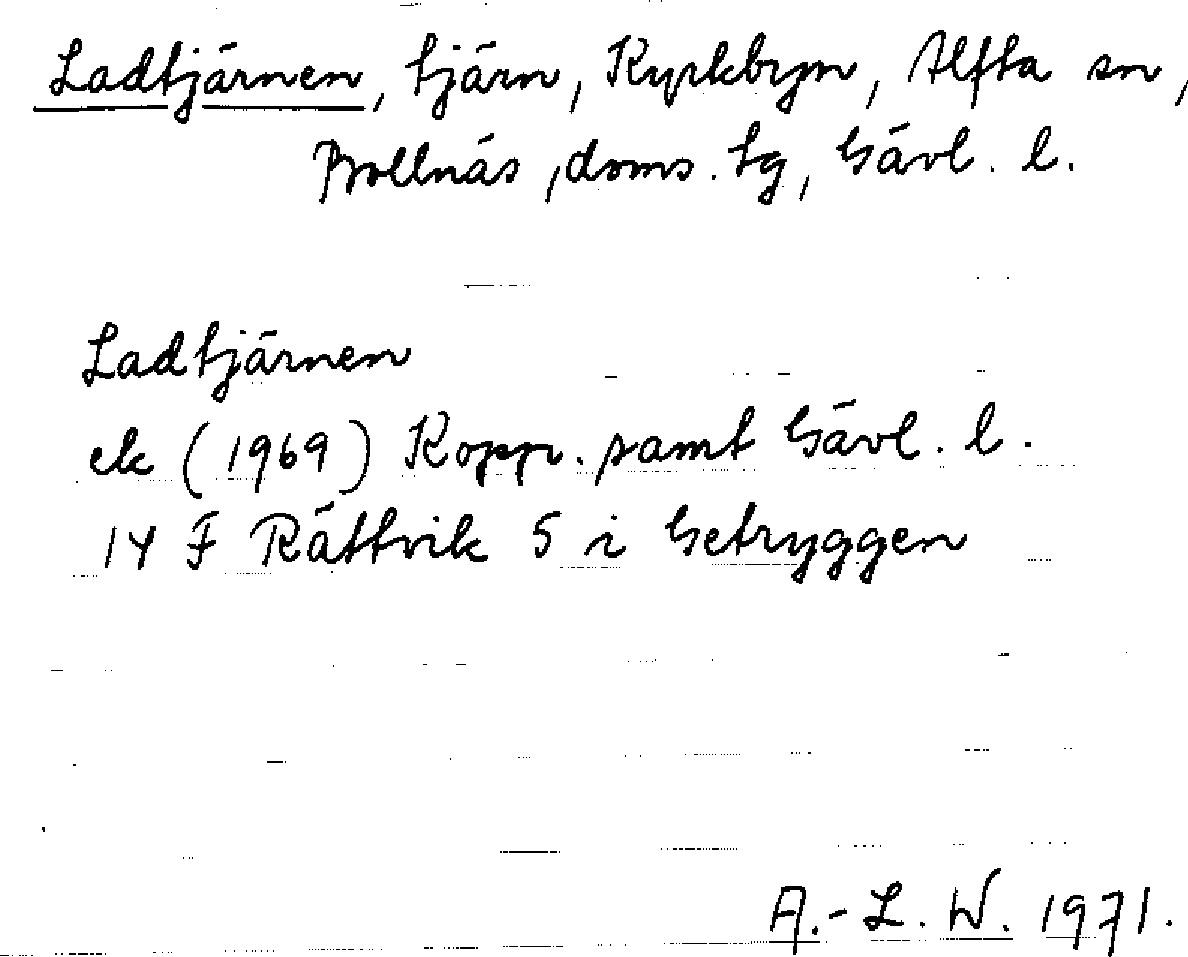 Ladtjärnen, tjärn, Kyrkbyn, Alfta sn,
Bollnäs, doms. tg, Gävl. l.
Ladtjärnen
ek (1969) Kopp. samt Gävl. l.
14 F Rättvik 5 i Getryggen
A.-L. W. 1971.